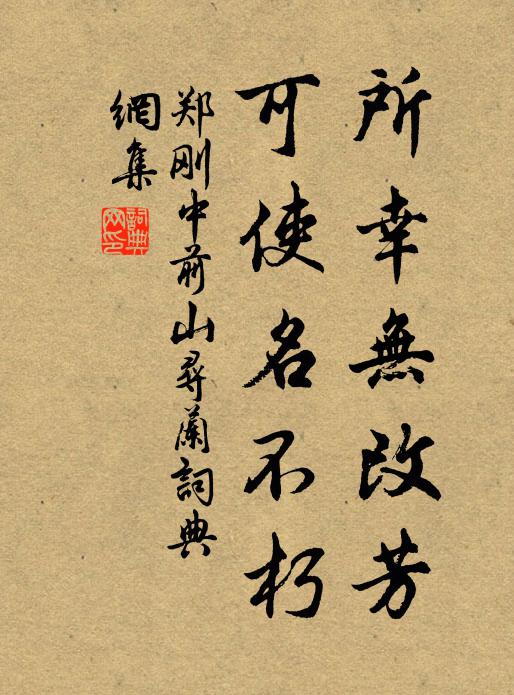 所幸無改芳
可使名不朽
郑刚中前山尋蘭詞典
網集
詞典
网印